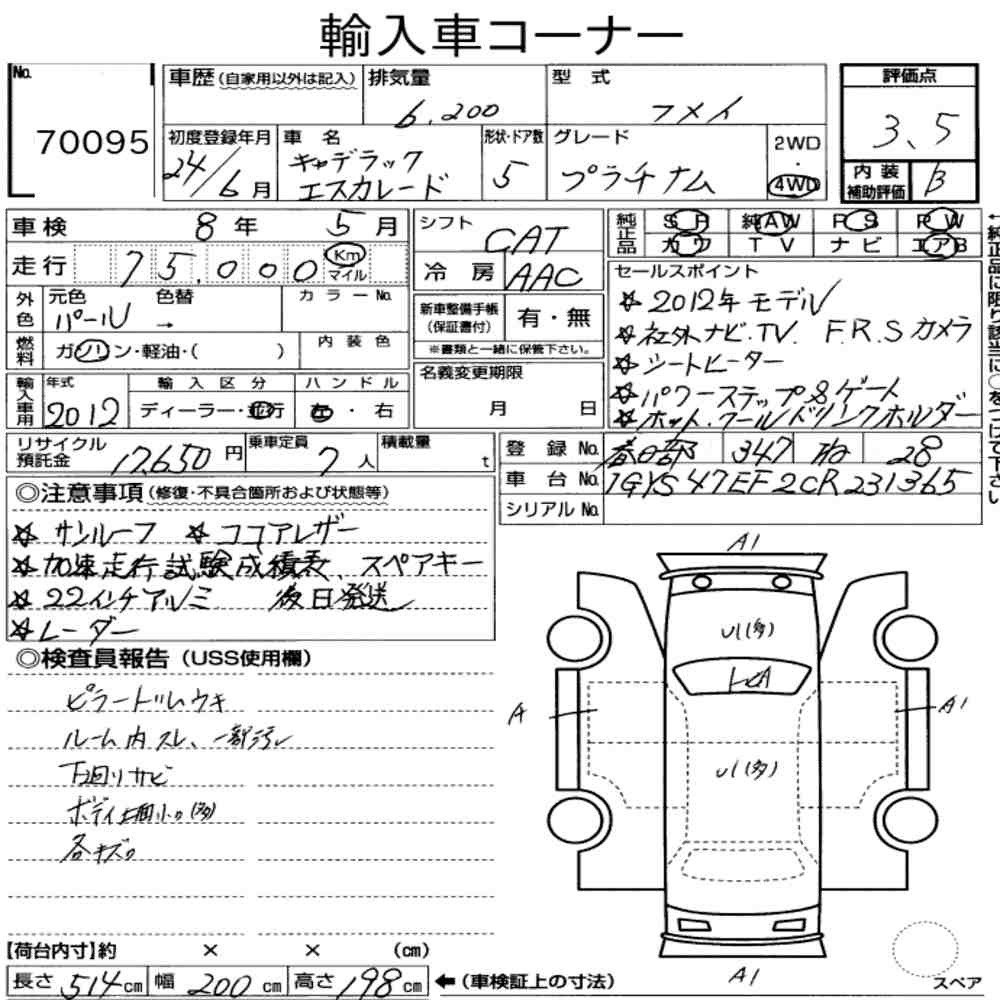 輸入車コーナー
No. 70095
車歴(自家用以外は記入)
排気量 6,200
型式 フメイ
評価点 3.5
内装補助評価 B
初度登録年月 24/6月
車名 キャデラック エスカレード
形状・ドア数 5
グレード プラチナム
2WD・4WD
車検 8年 5月
シフト CAT
純正品 SR 純AW PS PW
カワ TV ナビ エアB
走行 75,000 Km マイル
冷房 AAC
←純正品に限り該当に○をつけて下さい
外色 元色 パール 色替 → カラーNo.
新車整備手帳(保証書付) 有・無
※書類と一緒に保管下さい。
燃料 ガソリン・軽油・( ) 内装色
セールスポイント
☆ 2012年モデル
☆ 社外ナビ.TV. F.R.Sカメラ
☆ シートヒーター
☆ パワーステップ&ゲート
☆ ホット、クールドリンクホルダー
輸入車用 年式 2012
輸入区分 ディーラー・並行
ハンドル 左・右
名義変更期限 月 日
リサイクル預託金 17,650円
乗車定員 7人
積載量 t
登録No. 春日部 347 ね 28
車台No. 1GYS47EF2CR231365
シリアルNo.
◎注意事項(修復・不具合箇所および状態等)
☆ サンルーフ ☆ ココアレザー
☆ 加速走行試験成績表、スペアキー
☆ 22インチアルミ 後日発送
☆ レーダー
◎検査員報告(USS使用欄)
ピラートリムウキ
ルーム内スレ、一部汚レ
下回りサビ
ボディ上面小U(多)
各キズU
A1
U1(多)
トビA
A
A1
U1(多)
A1
スペア
【荷台内寸】約 × × (cm)
長さ 514cm 幅 200cm 高さ 198cm ←(車検証上の寸法)